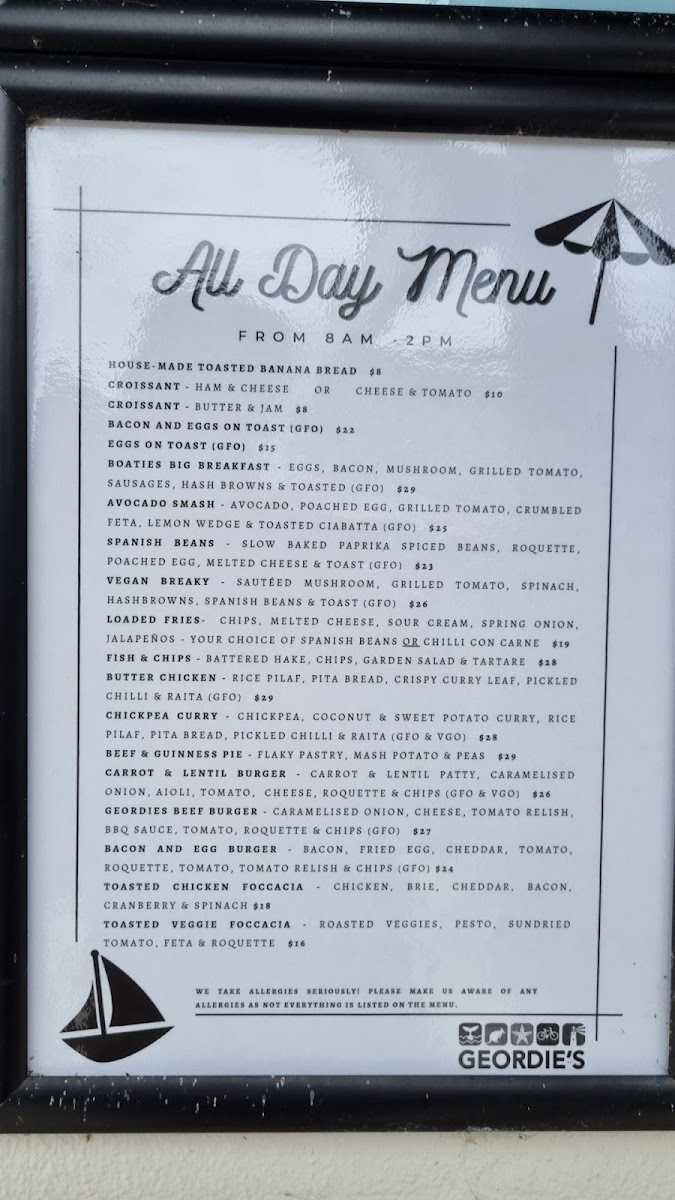 All Day Menu
FROM 8AM - 2PM
HOUSE-MADE TOASTED BANANA BREAD $8
CROISSANT - HAM & CHEESE OR CHEESE & TOMATO $10
CROISSANT - BUTTER & JAM $8
BACON AND EGGS ON TOAST (GFO) $22
EGGS ON TOAST (GFO) $15
BOATIES BIG BREAKFAST - EGGS, BACON, MUSHROOM, GRILLED TOMATO,
SAUSAGES, HASH BROWNS & TOASTED (GFO) $29
AVOCADO SMASH - AVOCADO, POACHED EGG, GRILLED TOMATO, CRUMBLED
FETA, LEMON WEDGE & TOASTED CIABATTA (GFO) $25
SPANISH BEANS - SLOW BAKED PAPRIKA SPICED BEANS, ROQUETTE,
POACHED EGG, MELTED CHEESE & TOAST (GFO) $23
VEGAN BREAKY - SAUTÉED MUSHROOM, GRILLED TOMATO, SPINACH,
HASHBROWNS, SPANISH BEANS & TOAST (GFO) $26
LOADED FRIES- CHIPS, MELTED CHEESE, SOUR CREAM, SPRING ONION,
JALAPEÑOS - YOUR CHOICE OF SPANISH BEANS OR CHILLI CON CARNE $19
FISH & CHIPS - BATTERED HAKE, CHIPS, GARDEN SALAD & TARTARE $28
BUTTER CHICKEN - RICE PILAF, PITA BREAD, CRISPY CURRY LEAF, PICKLED
CHILLI & RAITA (GFO) $29
CHICKPEA CURRY - CHICKPEA, COCONUT & SWEET POTATO CURRY, RICE
PILAF, PITA BREAD, PICKLED CHILLI & RAITA (GFO & VGO) $28
BEEF & GUINNESS PIE - FLAKY PASTRY, MASH POTATO & PEAS $29
CARROT & LENTIL BURGER - CARROT & LENTIL PATTY, CARAMELISED
ONION, AIOLI, TOMATO, CHEESE, ROQUETTE & CHIPS (GFO & VGO) $26
GEORDIES BEEF BURGER - CARAMELISED ONION, CHEESE, TOMATO RELISH,
BBQ SAUCE, TOMATO, ROQUETTE & CHIPS (GFO) $27
BACON AND EGG BURGER - BACON, FRIED EGG, CHEDDAR, TOMATO,
ROQUETTE, TOMATO, TOMATO RELISH & CHIPS (GFO) $24
TOASTED CHICKEN FOCCACIA - CHICKEN, BRIE, CHEDDAR, BACON,
CRANBERRY & SPINACH $18
TOASTED VEGGIE FOCCACIA - ROASTED VEGGIES, PESTO, SUNDRIED
TOMATO, FETA & ROQUETTE $16
WE TAKE ALLERGIES SERIOUSLY! PLEASE MAKE US AWARE OF ANY
ALLERGIES AS NOT EVERYTHING IS LISTED ON THE MENU.
GEORDIE'S